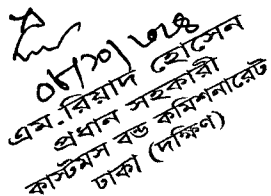 ০৮/১০/২৩
এম. রিয়াদ হোসেন
প্রধান সহকারী
কাস্টমস বন্ড কমিশনারেট
ঢাকা (দক্ষিণ)